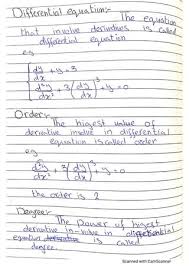 Differential equation:-
The equation
that involve derivatives is called
differential equation
eg
dy/dx + y = 3
d²y/dx² + 3(dy/dx)³ + y = 0
Order:-
The higest value of
derivative involve in differential
equation is called order
eg
d²y/dx² + 3(dy/dx)³ + y = 0
the order is 2
Degree:-
The power of higest
derivative in-volve in differential
equation is called
degree.
Scanned with CamScanner